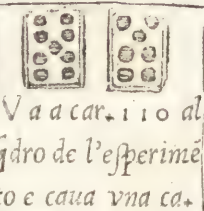 Va a car. 110 al
qdro de l'esperimē
to e caua vna ca.